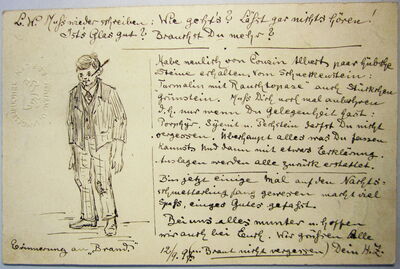 L. W. Muß wieder schreiben: Wie gehts? Läßt gar nichts hören!
Ists Glas gut? Brauchst Du mehr?
Habe neulich von Cousin Albert paar hübsche
Steine erhalten, vom Schneckenstein:
Turmalin mit Rauchtopase auch Stückchen
Grünstein. Muß Dich noch mal
d. h. nur wenn Du Gelegenheit hast:
Porphyr, Syenit u. Pechstein darfst Du nicht
vergessen. Überhaupt alles was Du fassen
kannst und dann mit etwas Erklärung.
Auslagen werden alle zurück erstattet.
Bin jetzt einige Mal auf den Nachts-
schmetterlingsfang gewesen macht viel
Spaß, einges Gutes gefaßt.
Bei uns alles munter u. hoffen
wir auch bei Euch. Wir grüßen Alle
12/9. (Braut nicht vergessen) Dein H. Z.
Erinnerung an „Brand."